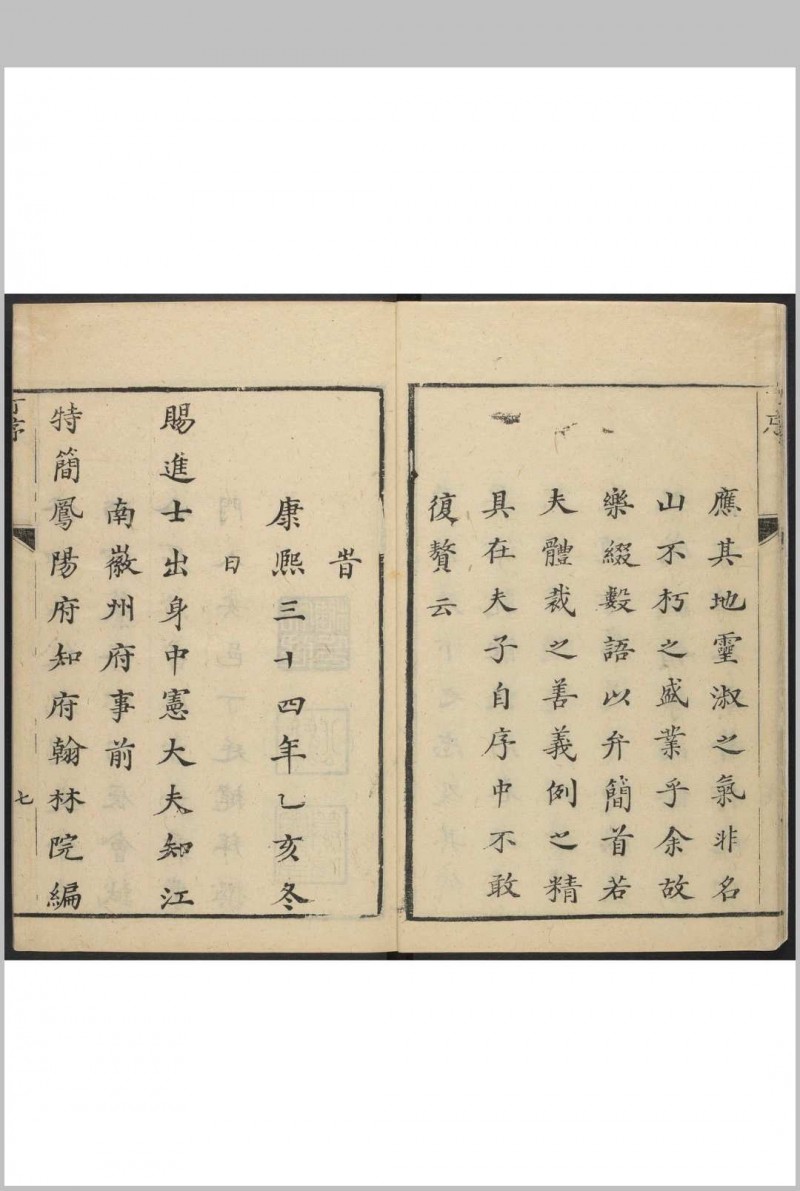 應其地靈淑之氣非名
山不朽之盛業乎余故
樂綴數語以弁簡首若
夫體裁之善義例之精
具在夫子自序中不敢
復贅云
旹
康熙三十四年乙亥冬
賜進士出身中憲大夫知江
南徽州府事前
特簡鳳陽府知府翰林院編
序
七